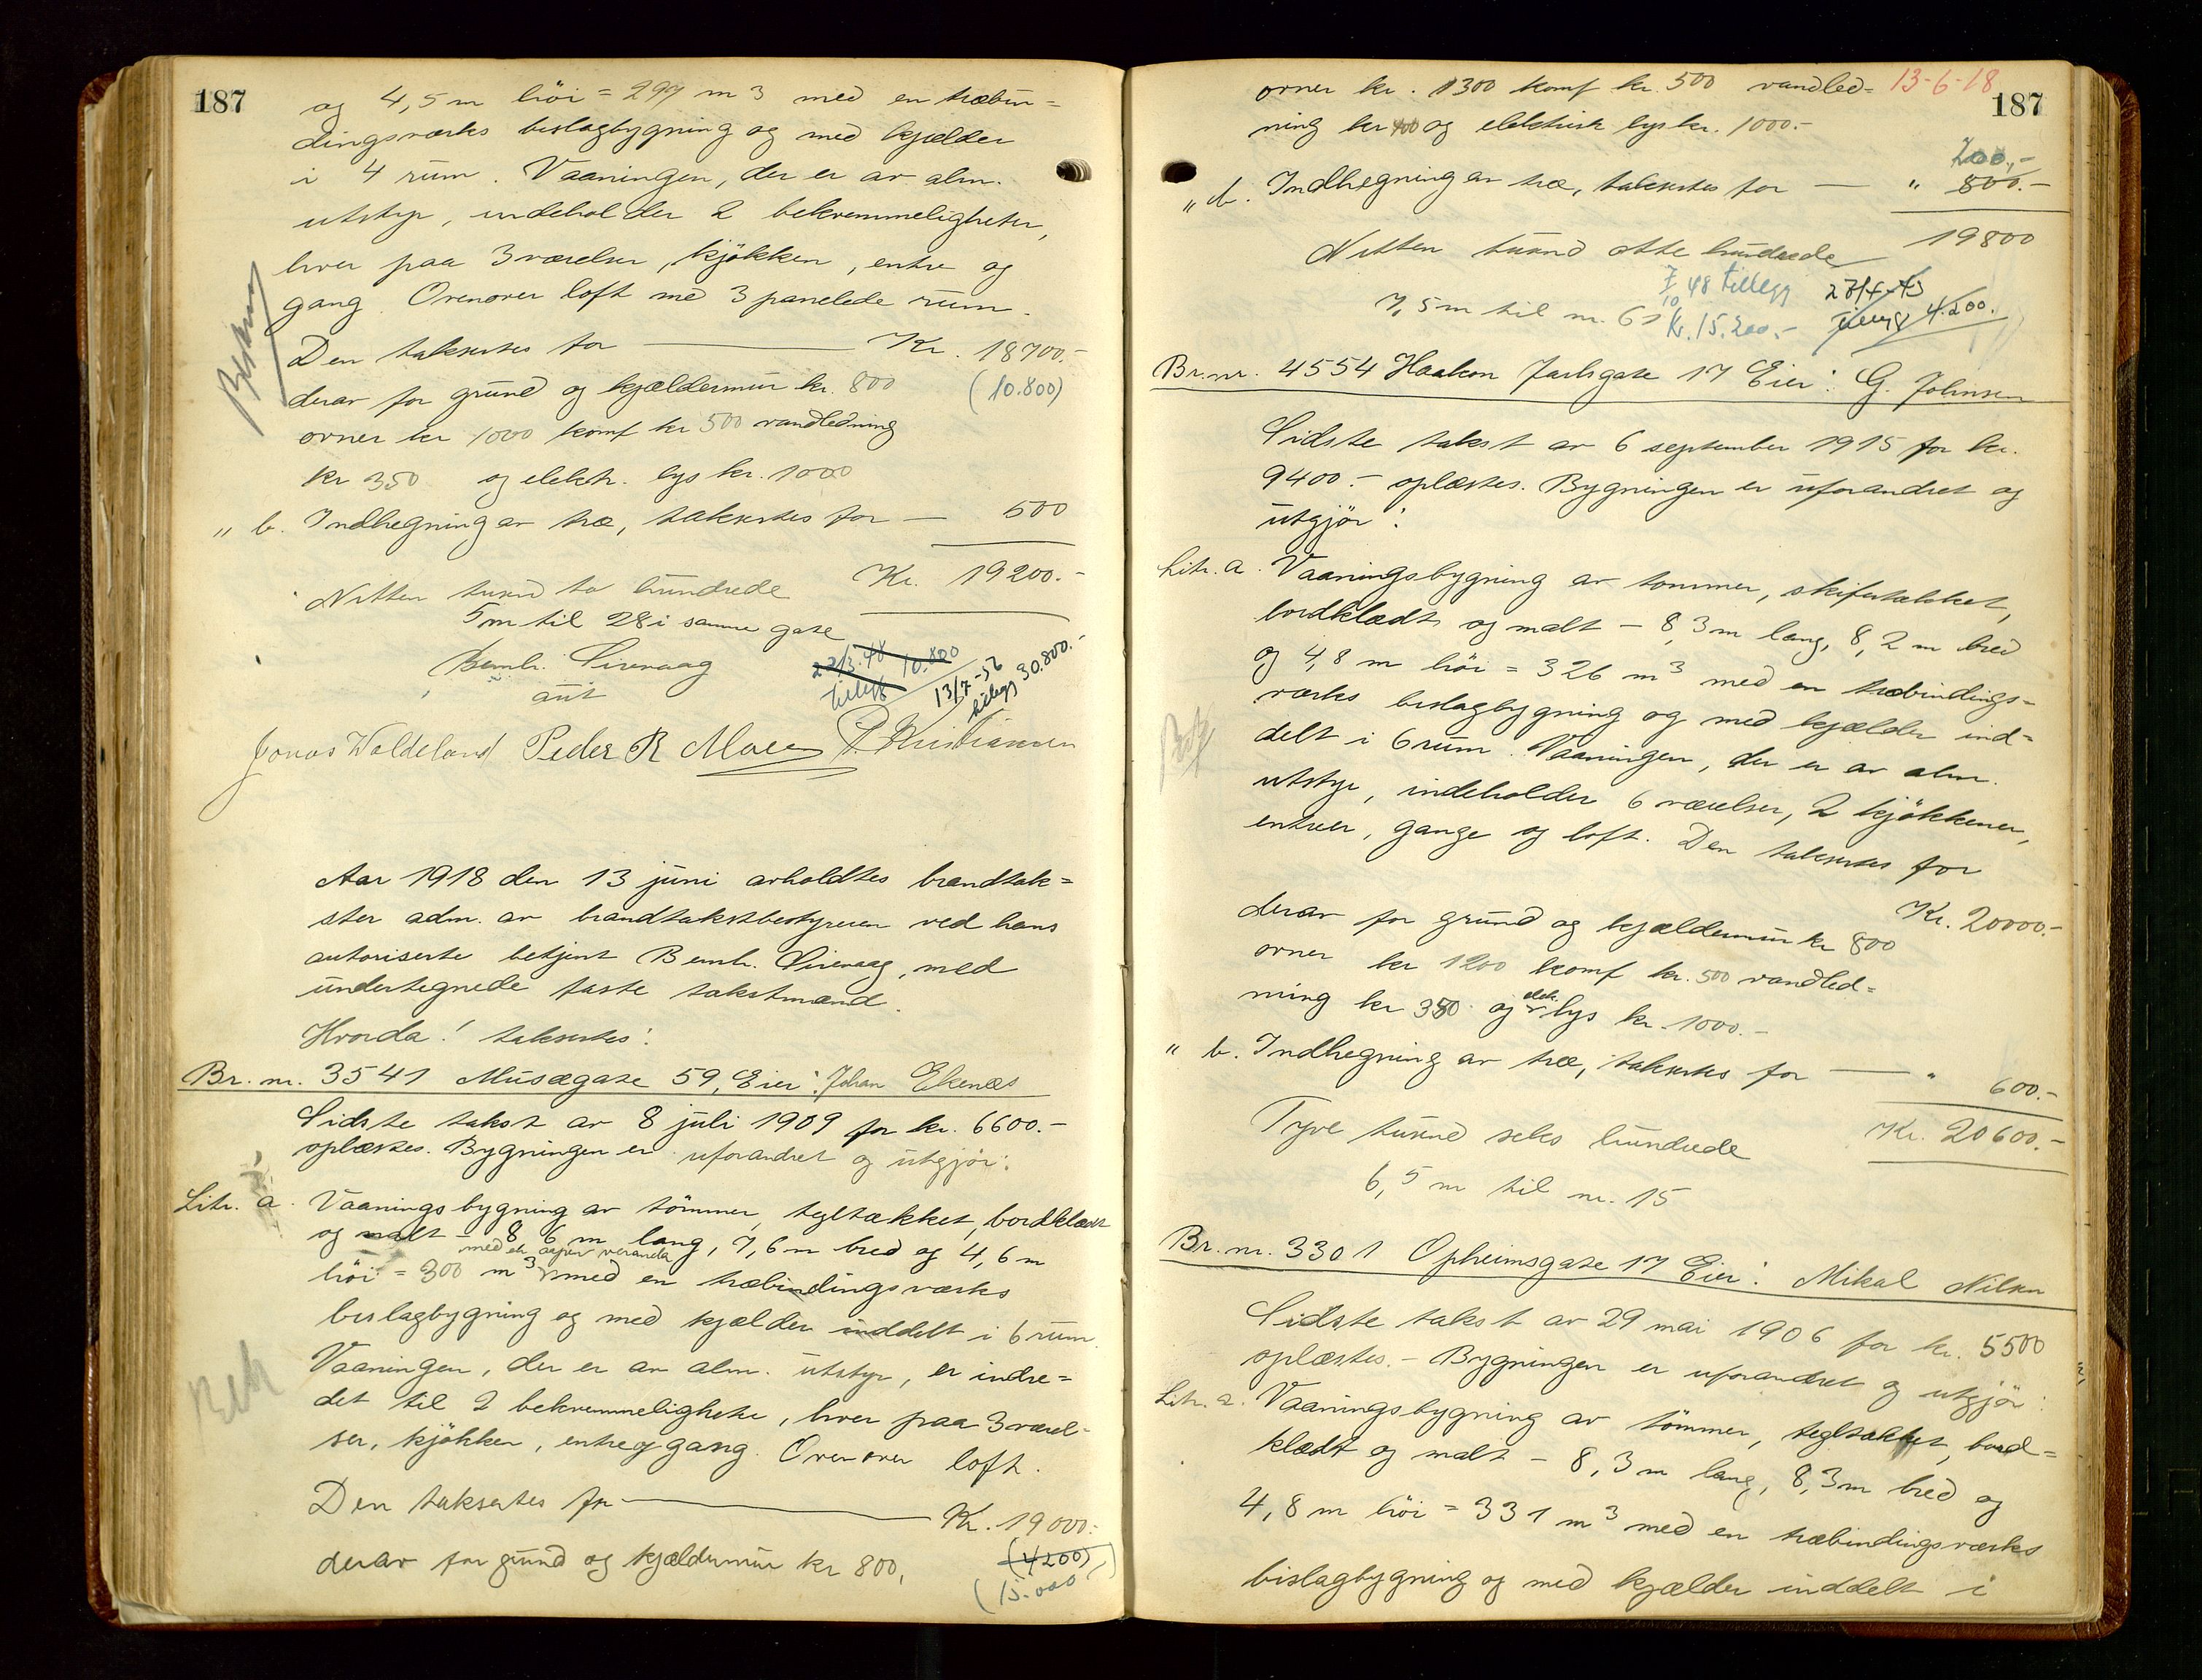 187
og 4,5 m höi = 297 m3 med en træbin=
dingsværks beslagbygning og med kjelder
i 4 rum. Vaaningen, der er av alm.
utstyr, indeholder 2 bekvemmeligheter,
hver paa 3 værelser, kjökken, entre og
gang. Ovenover loft med 3 panelede rum.
Den taksertes for — Kr. 18700.-
derav for grund og kjældermur kr. 800 (10.800)
ovner kr 1000 komf kr 500 vandledning
kr 350 og elektr. lys kr. 1000
" b. Indhegning av træ, taksertes for — 500
Kr. 19200.-
Nitten tusind to hundrede
5 m til 28 i samme gate
Bernh. Sirevaag
aut
22/3.48 10.800
tillegg
13/7-56
tillegg 30.800.-
Jonas Waldeland Peder R Moe P. Kristiansen
Aar 1918 den 13 juni avholdtes brandtak=
ster adm. av brandtakstbestyreren ved hans
autoriserte betjent Bernh. Sirevaag, med
undertegnede faste takstmænd.
Hvorda! taksertes:
Br. nr. 3541 Musægate 59, Eier: Johan Ekenæs
Sidste takst av 8 juli 1909 for kr. 6600.-
oplæstes. Bygningen er uforandret og utgjör:
Litr. a. Vaaningsbygning av tömmer, tegltækket, bordklædt
og malt - 8,6 m lang, 7,6 m bred og 4,6 m
med en aapen veranda
höi = 300 m3 med en træbindingsværks
beslagbygning og med kjælder inddelt i 6 rum.
Vaaningen, der er av alm. utstyr, er indre=
det til 2 bekvemmeligheter, hver paa 3 værel-
ser, kjökken, entre og gang. Ovenover loft.
Den taksertes for — Kr. 19000.-
derav for grund og kjældermur kr 800,
(4200)
(15.000)
13-6-18
187
ovner kr. 1300 komf kr. 500 vandled=
ning kr 400 og elektrisk lys kr. 1000.-
200.-
" b. Indhegning av træ, taksertes for — " 800.-
19800
Nitten tusind otte hundrede
7,5 m til nr. 61
7/10 48 tillegg
Kr. 15.200.-
tillegg 4.200.
Br. nr. 4554 Haakon Jarlsgate 17 Eier: G. Johnsen
Sidste takst av 6 september 1915 for kr.
9400.- oplæstes. Bygningen er uforandret og
utgjör:
Litr. a. Vaaningsbygning av tömmer, skifertækket,
bordklædt og malt - 8,3 m lang, 8,2 m bred
og 4,8 m höi = 326 m3 med en træbindings=
værks beslagbygning og med kjælder ind=
delt i 6 rum. Vaaningen, der er av alm.
utstyr, indeholder 6 værelser, 2 kjökkener,
entreer, gange og loft. Den taksertes for
Kr. 20000.-
derav for grund og kjældermur kr 800
ovner kr 1200 komf kr. 500 vandled=
ning kr 350 og elek. lys kr. 1000.-
" b. Indhegning av træ, taksertes for — " 600.-
Kr. 20600.-
Tyve tusind seks hundrede
6,5 m til nr. 15
Br. nr. 3301 Opheimsgate 17 Eier: Mikal Nilsen
Sidste takst av 29 mai 1906 for kr. 5500
oplæstes. - Bygningen er uforandret og utgjör:
Litr. a. Vaaningsbygning av tömmer, tegltækket, bord=
klædt og malt - 8,3 m lang, 8,3 m bred og
4,8 m höi = 331 m3 med en træbindingsværks
bislagbygning og med kjælder inddelt i